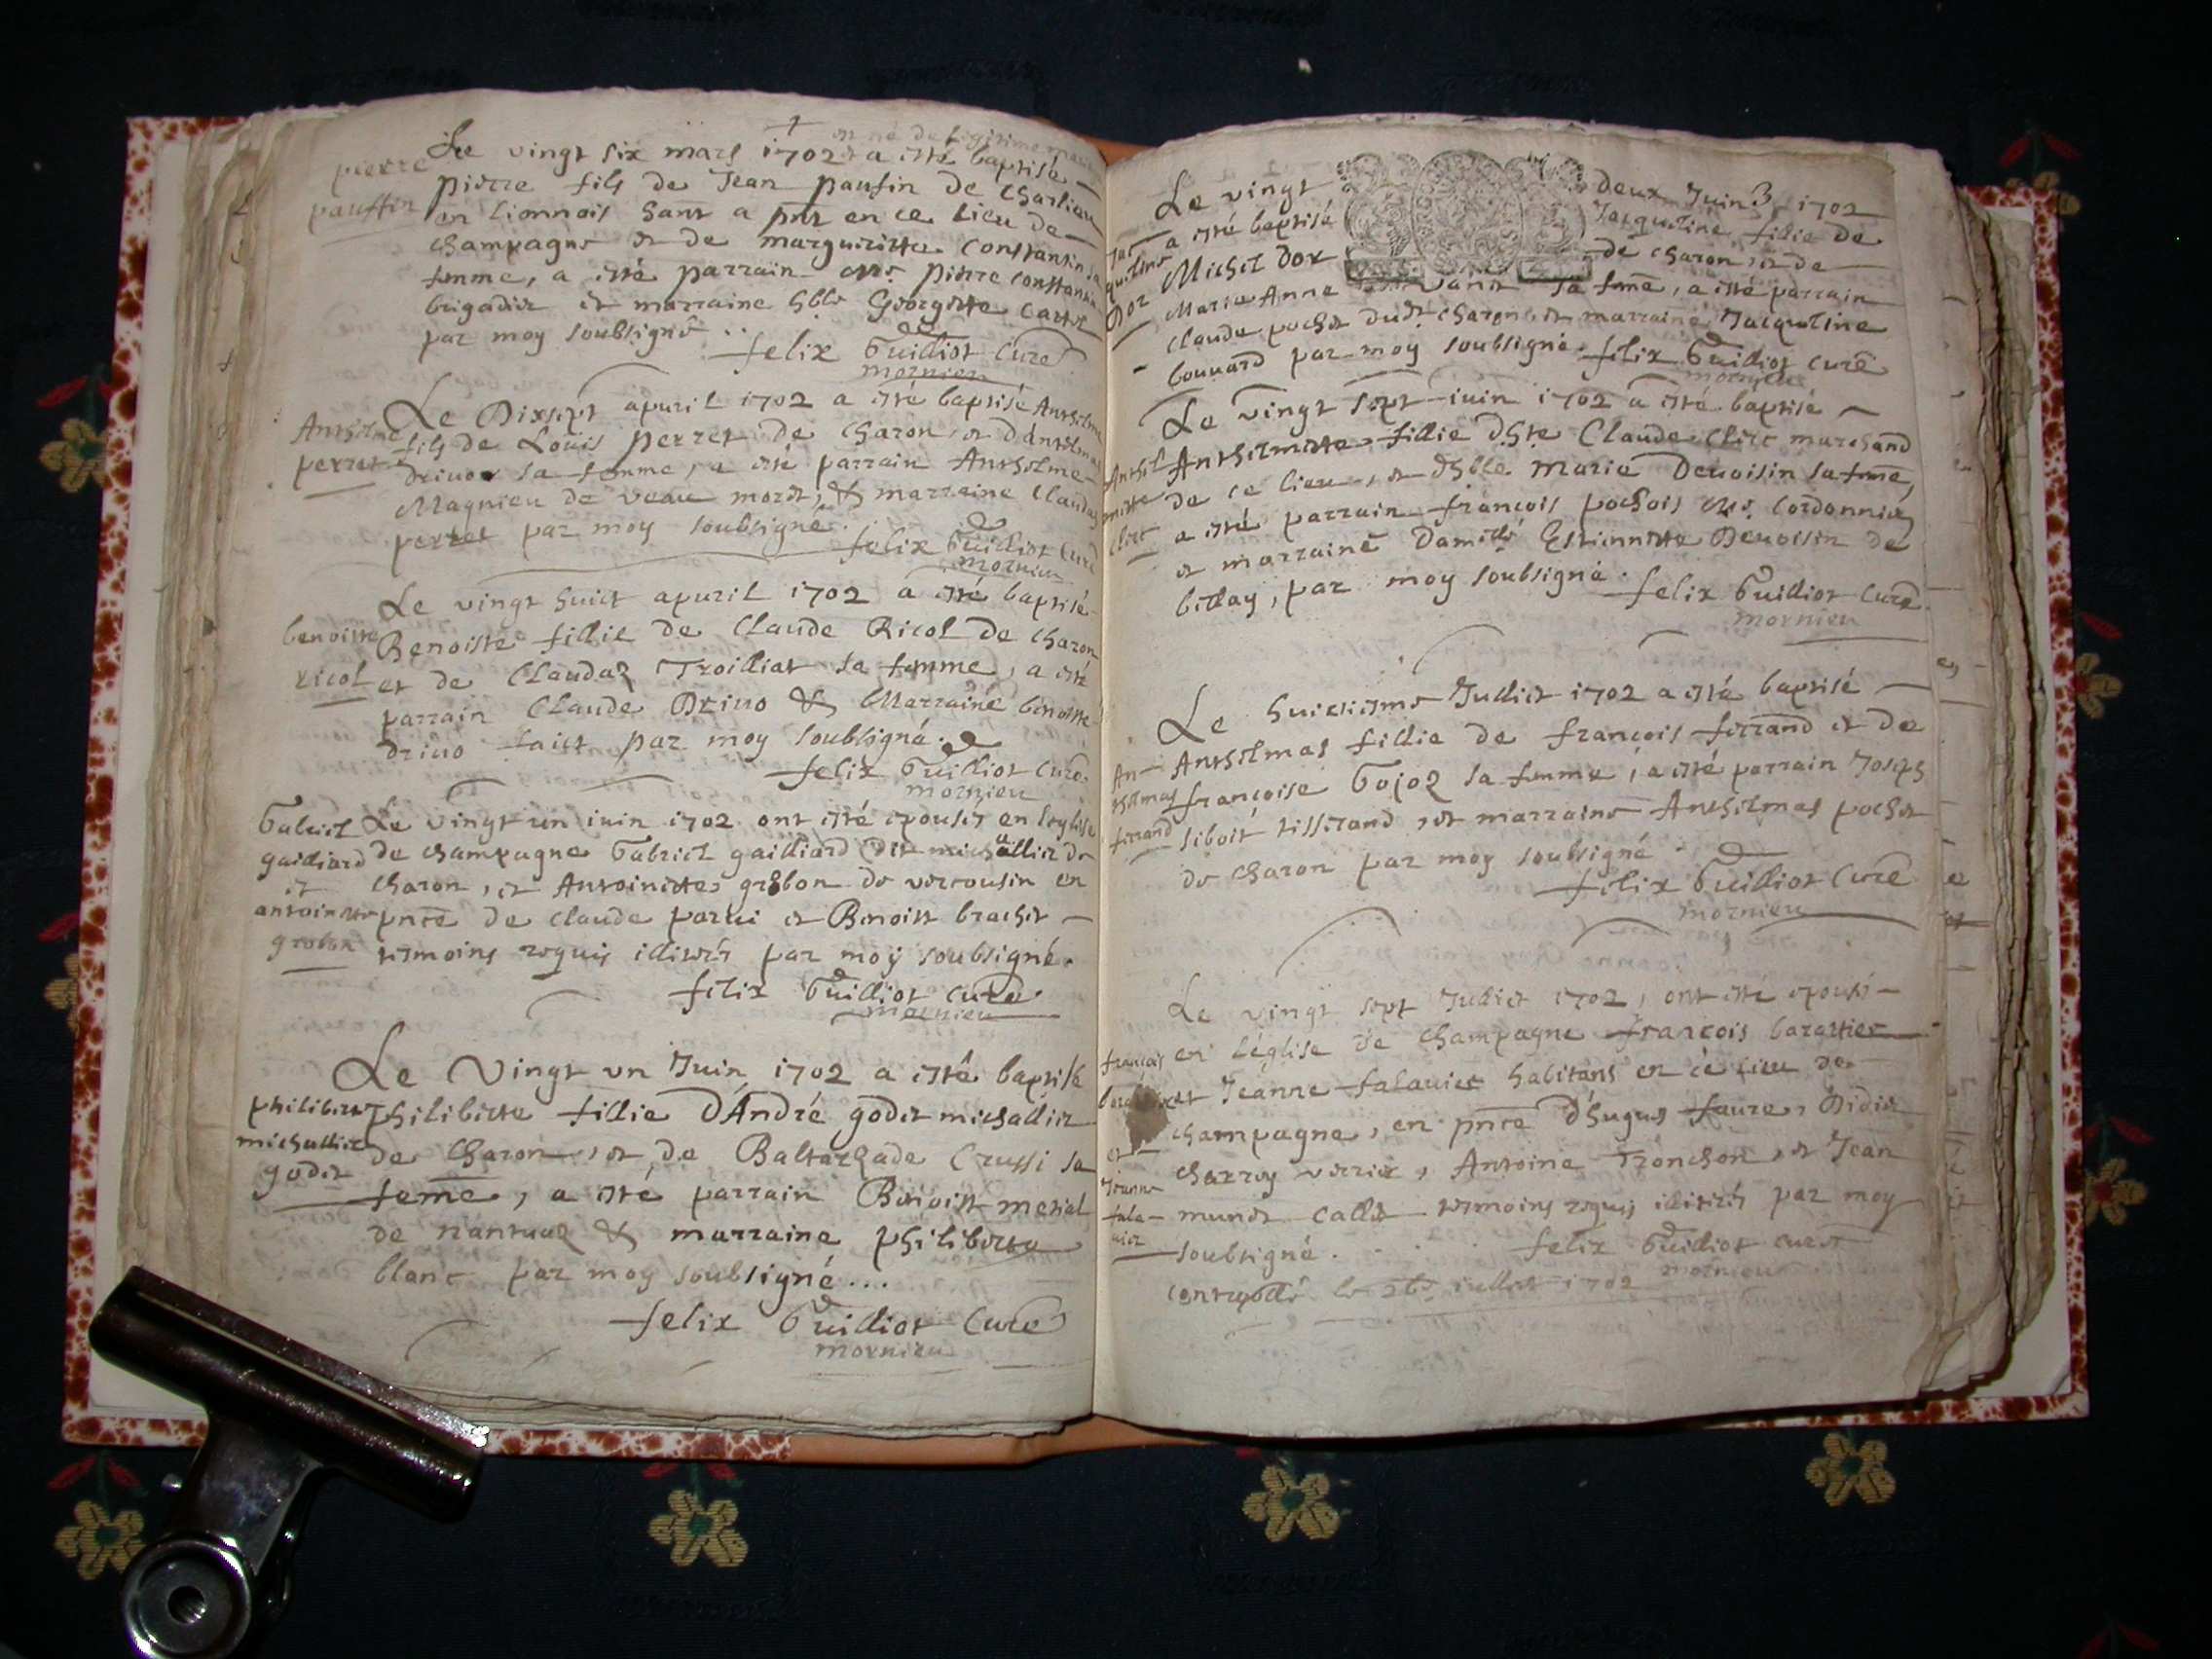 et né de legitime
pierre
pauffin
Le vingt six mars 1702 a esté baptisé
pierre fils de Jean paufin de Charlieu
en lionnois hant a pnt en ce lieu de
champagne et de margueritte Constantin sa
femme, a esté parrain Mr pierre constantin
brigadier et marraine hble Georgette Cartet
par moy soubsigné
felix Guilliot Curé
mornieu
Anthelme
perret
Le Dixsept apuril 1702 a esté baptisé Anthelme
fils de Loüis perret de Charon, et d'Anthelmas
driuon sa femme, a esté parrain Anthelme
Magnieu de veau moret, & marraine Claudaz
perret par moy soubsigné.
felix Guilliot Curé
mornieu
benoiste
ricol
Le vingt huict apuril 1702 a esté baptisé
Benoiste fillie de Claude Ricol de Charon
et de Claudaz Troilliat sa femme, a esté
parrain Claude Driuo & Marrainé benoiste
driuo faict par moy soubsigné.
felix Guilliot Curé.
mornieu
Gabriel
gailliard
et
antoinette
grobon
Le vingt un iuin 1702 ont esté epousés en l'eglise
de champagne Gabriel gailliard dit michallier de
Charon, et Antoinette grobon de vercousin en
pnce de Claude parui et Benoist brachet
tesmoins requis illiterés par moy soubsigné.
felix Guilliot curé
mornieu
philiberte
michallier
godet
Le Vingt vn Juin 1702 a esté baptisée
Philiberte fillie D'André godet michallier
de Charon, et de Baltazade Crussi sa
feme, a esté parrain Benoist merial
de nantuaz & marraine philiberte
blanc par moy soubsigné...
felix Guilliot Curé
mornieu
Jac
queline
Dor
Le vingt deux Juin 1702
a esté baptisé Jacqueline fillie de
Michel Dor de Charon, et de
Marie Anne sa feme, a esté parrain
Claude pochet dudt charon et marraine Jacqueline
bouuard par moy soubsigné. felix Guilliot curé
mornieu
Anthel
mette
clerc
Le vingt sept iuin 1702 a esté baptisé
Anthelmette fillie d'hte Claude Clerc marchand
de ce lieu, et d'hble Marie Deuoisin sa fme,
a esté parrain françois pochois Mre Cordonnier,
et marraine Damlle Estiennette Deuoisin de
billay, par moy soubsigné. felix Guilliot Curé
mornieu
An-
thelmas
ferrand
Le huictiesme Julliet 1702 a esté baptisé
Anthelmas fillie de françois ferrand et de
françoise Gojoz sa femme, a esté parrain Joseph
siboit tisserand, et marraine Anthelmas pochet
de charon par moy soubsigné
felix Guilliot Curé
mornieu
françois
et
Jeanne
fala-
uier
Le vingt sept Julliet 1702, ont esté epousé
en l'eglise de Champagne françois barattier
et Jeanne falauier habitans en ce lieu de
champagne, en pnce d'hugues faure, Didier
charroy verrier, Antoine Tronchon, et Jean
munet callet tesmoins requis illiterés par moy
soubsigné. felix Guilliot curé
mornieu
controollé le iullet 1702